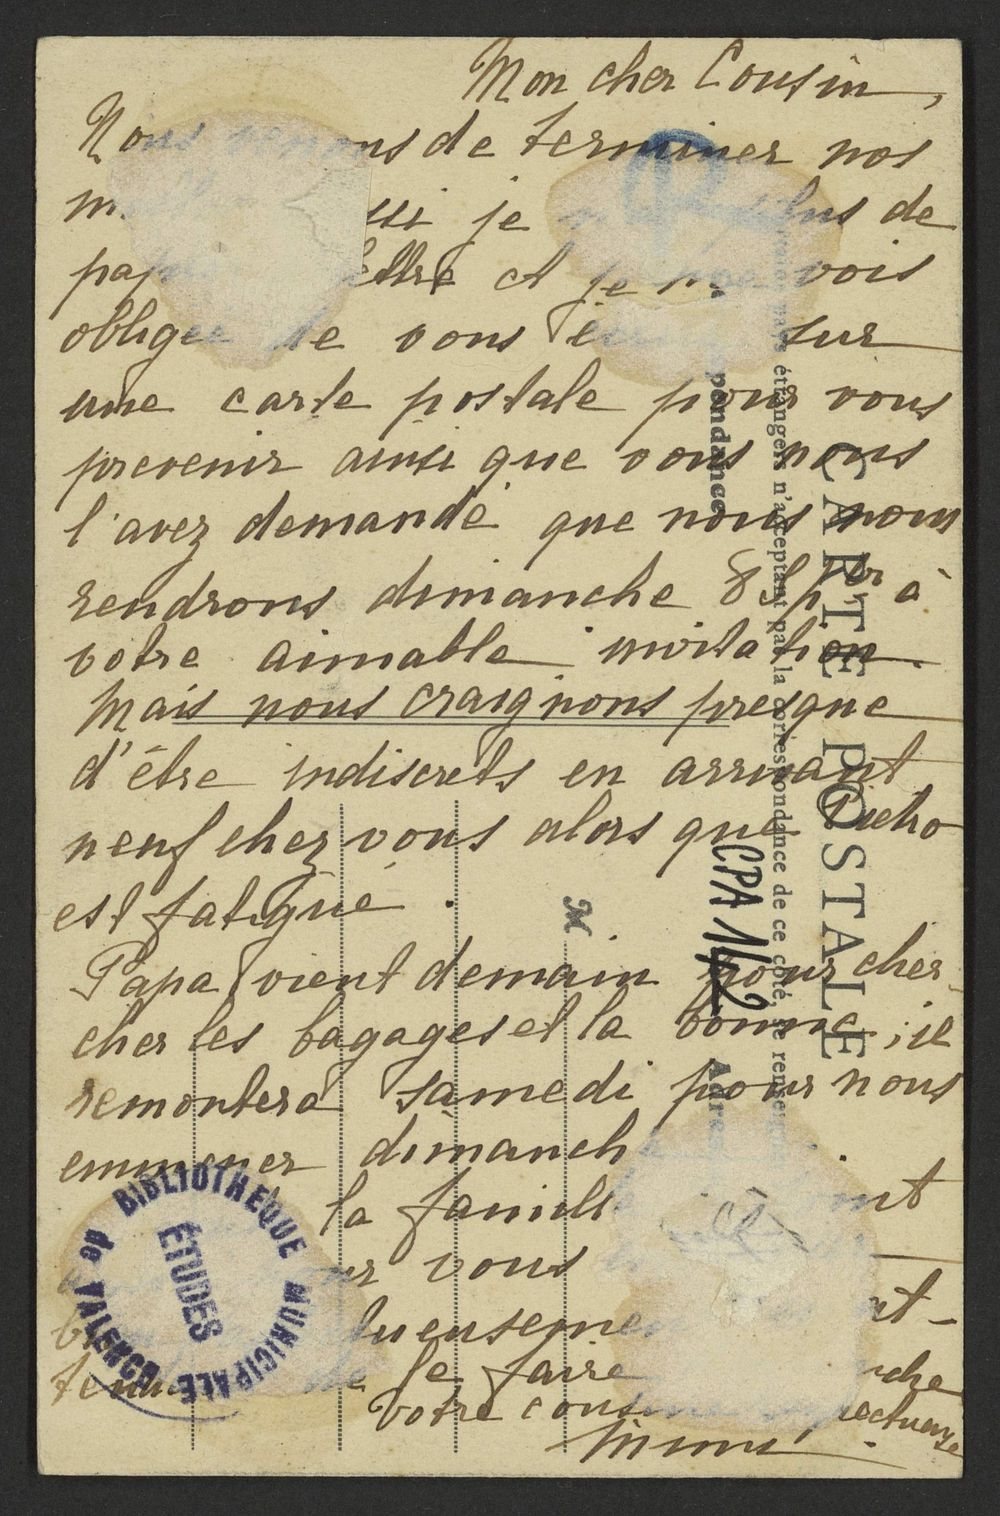 Mon cher Cousin,
Nous venons de terminer nos
m ssi je plus de
pap ettre et je me vois
obligée de vous sur
une carte postale pour vous
prevenir ainsi que vous nous
l'avez demandé que nous nous
rendrons dimanche 8 Sbre à
votre aimable invitation.
Mais nous craignons presque
d'être indiscrets en arrivant
neuf chez vous alors que
est fatigué.
Papa vient demain pour cher-
cher les bagages et la bonne, il
remontera samedi pour nous
emmener dimanch
la famill nt
er vous
tueuseme at-
tend de le faire nche
Votre cous ectueuse
Mimi
CARTE POSTALE
pays étrangers n'acceptant pas la correspondance de ce côté, se rensei
pondance
Adre
M
CPA 142
BIBLIOTHEQUE MUNICIPALE de VALENCE
ÉTUDES